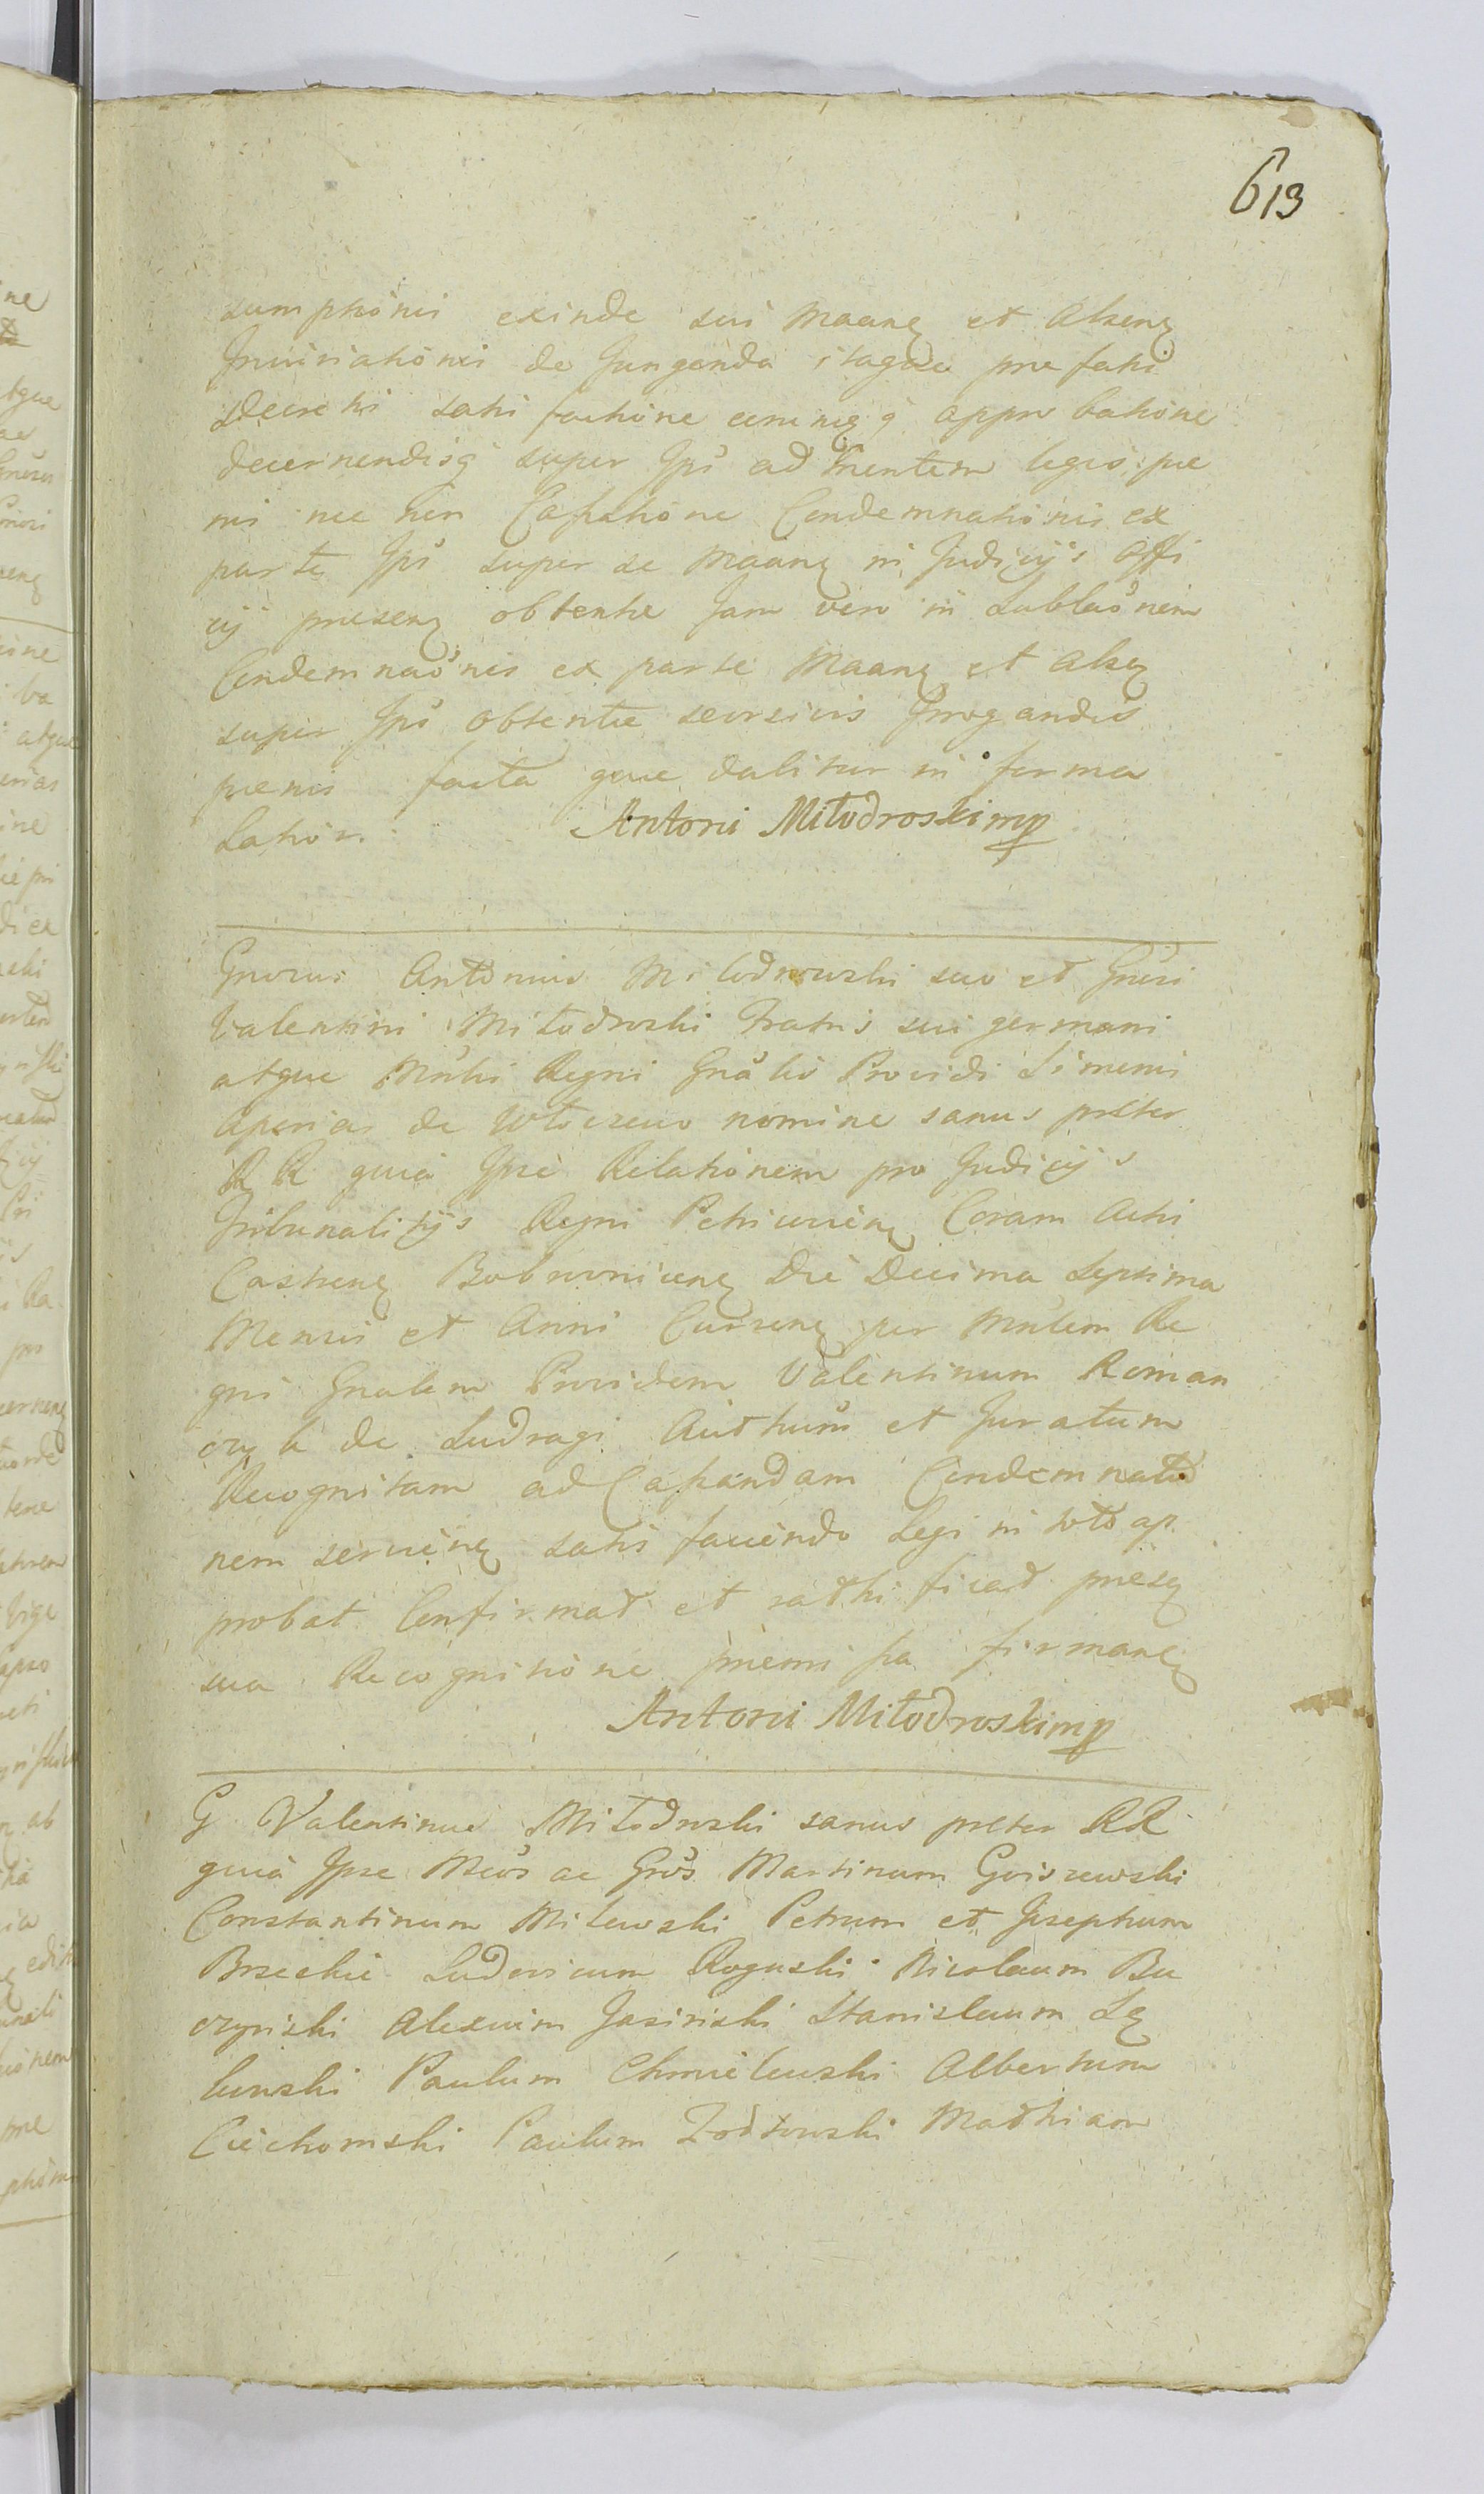 613
sumptionis exinde sui Maanꝫ et Alsenꝫ
Invisiationis de Jungenda itaque prefati
Decreti satisfactione eiusmꝫ approbatione
decernendisq super Ipsˢ ad mentem legis pœ
nis nec non Captatione Condemnationis ex
parte Ipsˢ super se Maanꝫ in Judicijs Offi
cij presenꝫ obtente Jam vero in Sublaõnem
Condemnaõnis ex parte Maanꝫ et Alsꝫ
super Ipsˢ obtentæ seorsivis Irrogandis
pœnis facta quæ dabitur in forma
Latior.
Antoni Miłodroski mp
Gnrosus Antonius Milodrowski suo et Gnrsi
Valentini Miłodroski Fratris sui germani
atque Mnlri Regni Gnalis Providi Simeonis
Aperias de Wtoczewo nomine sanus preter
RR quia Ipse Relationem pro Judicijs
Tribunalitijs Regni Petricovienꝫ Coram Actis
Castrenꝫ Bobrovnicenꝫ Die Decima Septima
Mensis et Anni Currenꝫ per Mnlem Re
gni Gnalem Providum Valentinum Roman
czyk de Sudragi Authūm et Juratum
Recognitam ad Captandam Condemnatio
nem servienꝫ satis faciendo Legi in toto ap
probat Confirmat et rathificat presꝫ
sua Recognitione premissa firmanꝫ
Antoni Miłodroski mp
G Valentinus Miłodroski sanus preter RR
quia Ipse Mcos ac Gros Martinum Goiszewski
Constantinum Milewski Petrum et Josephum
Brzeskie Ludovicum Roguski Nicolaum Bu
czynski Alexium Jasinski Stanislaum Lę
lewski Paulum Chmielewski Albertum
Ciechomski Paulum Zottowski Mathiam